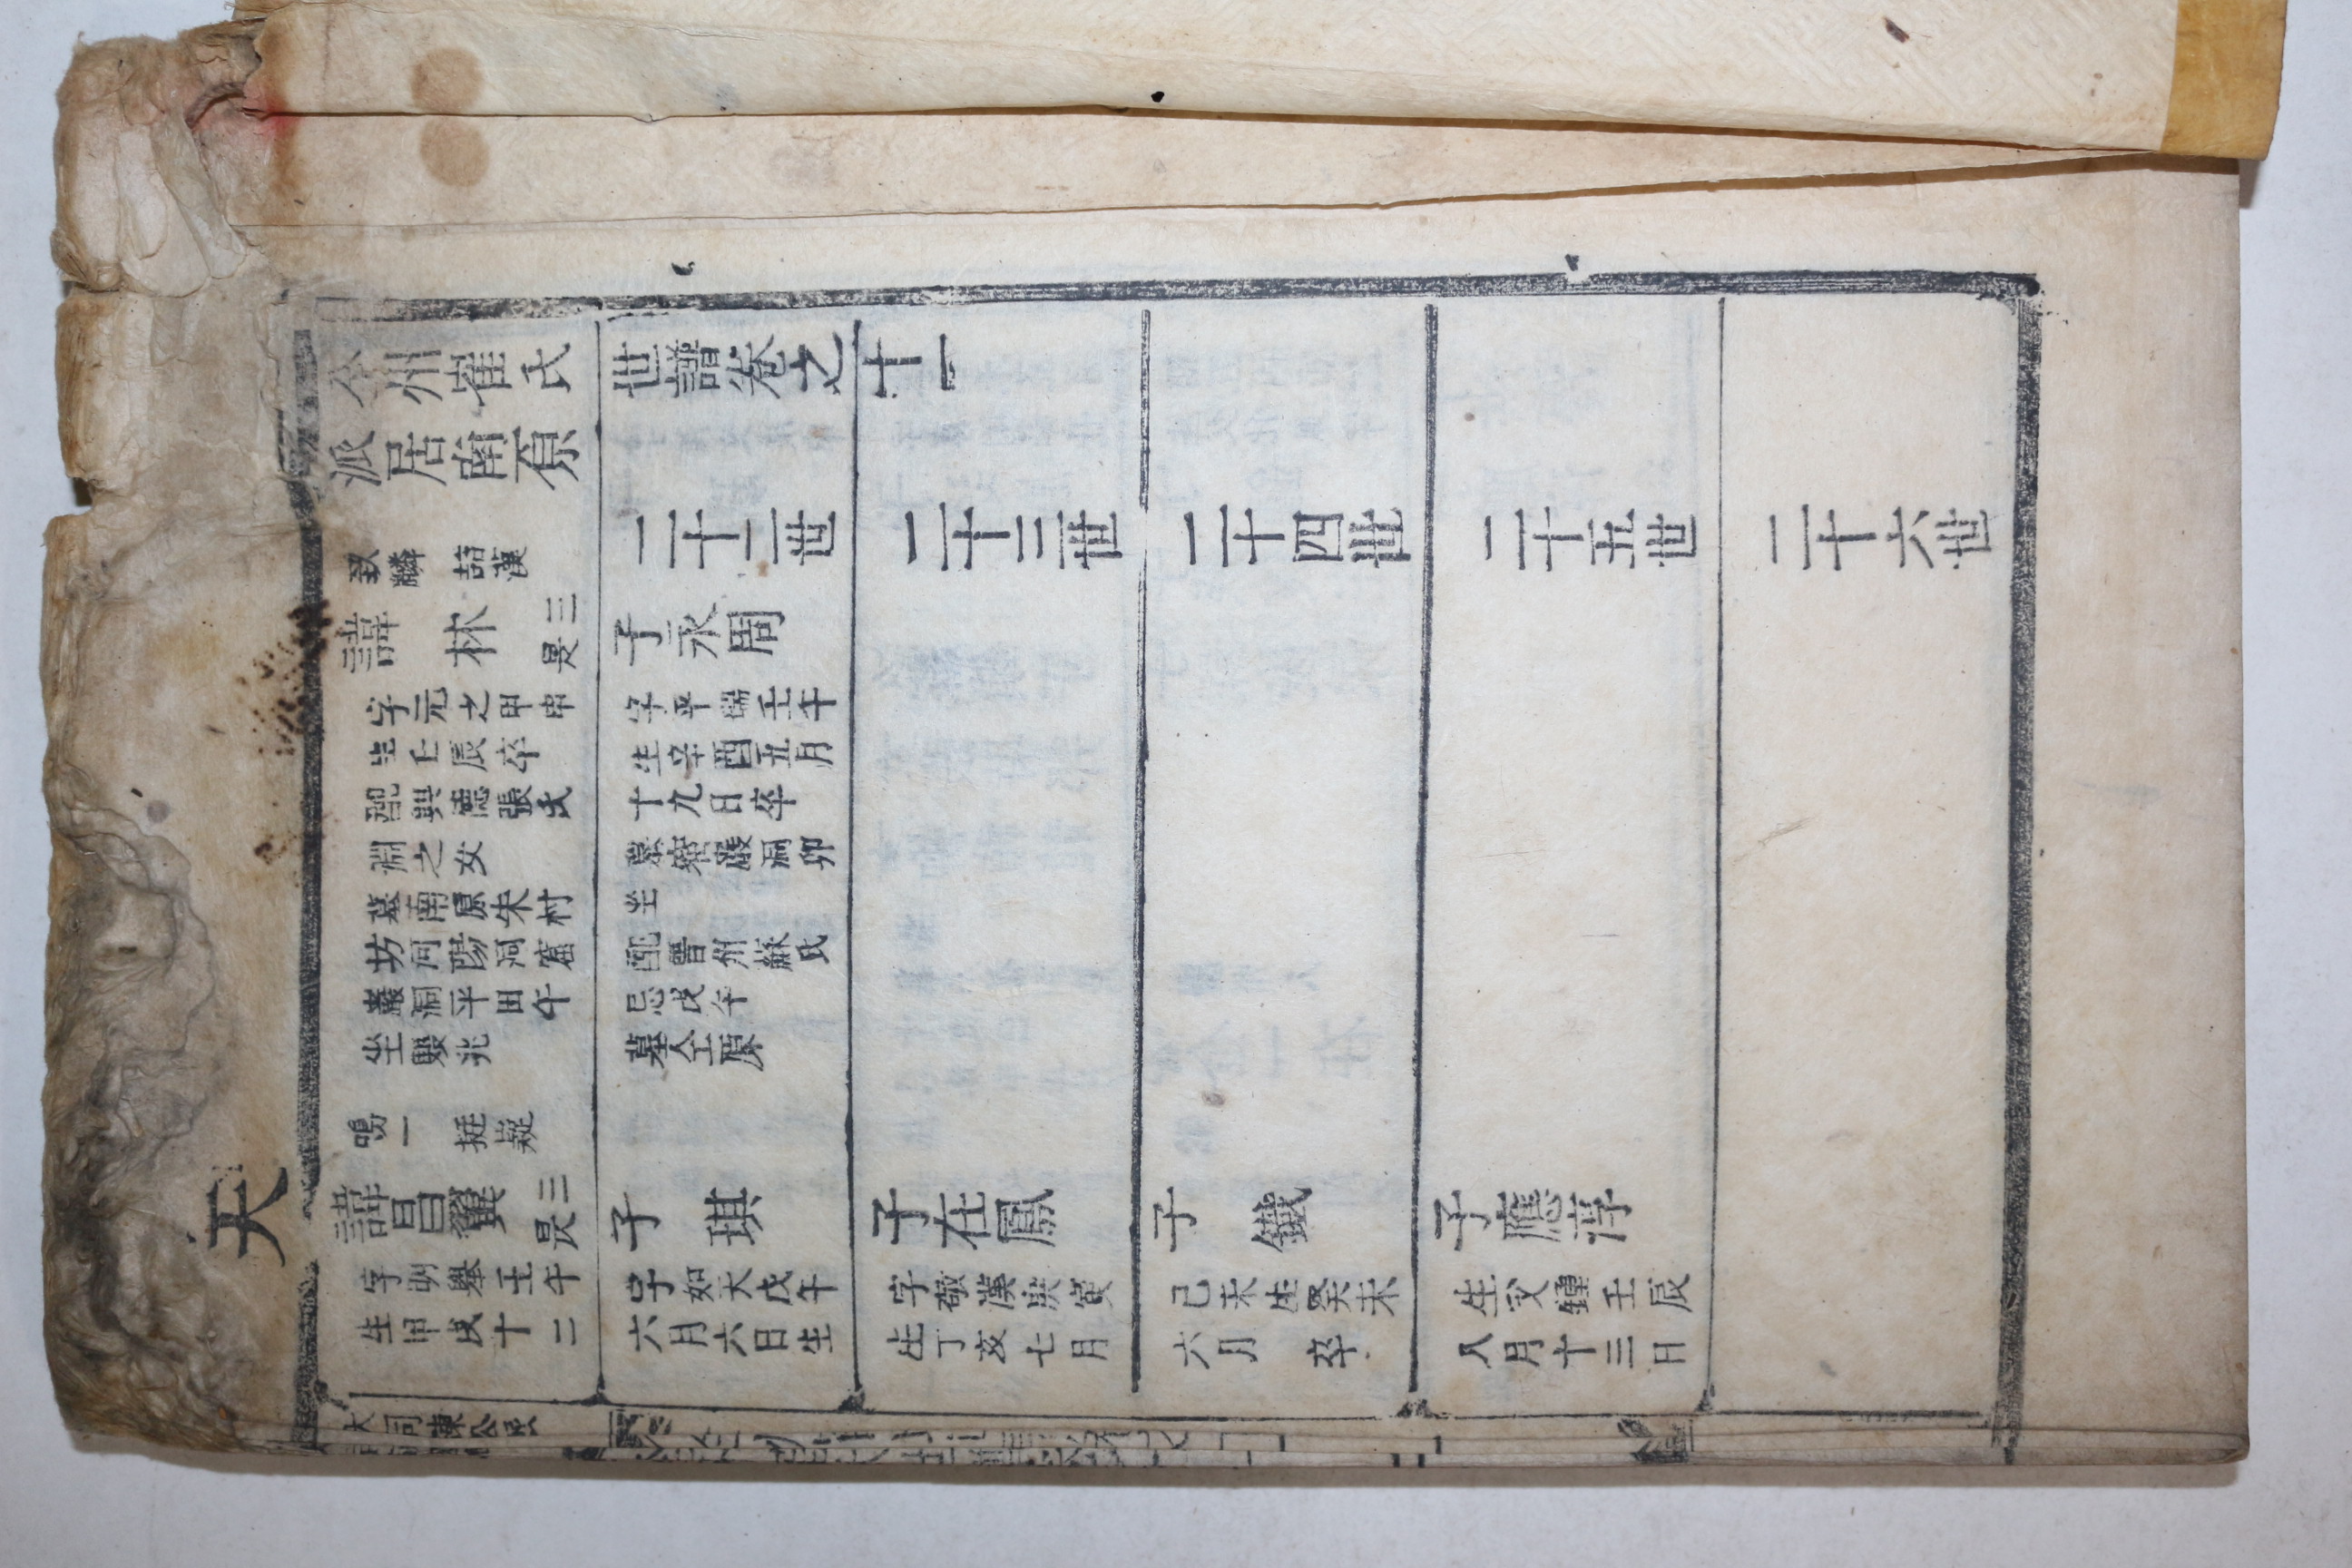 天
全州崔氏世譜卷之十一
派居南原
二十二世
二十三世
二十四世
二十五世
二十六世
致麟 喆漢
諱 林 三是
字元之甲申
生壬辰卒
配興德張氏
淵之女
墓南原朱村
坊河陽洞窟
巖洞平田午
坐雙兆
子永周
字平瑞壬午
生辛酉五月
十九日卒
墓窟巖洞卯
坐
配晉州蘇氏
忌戊午
墓仝原
鳴一 挺嶷
諱昌翼 三是
字明舉壬午
生甲戌十二
子 琪
字如天戊午
六月六日生
子在鳳
字敬漢庚寅
生丁亥七月
子 鐵
己未生癸未
六月 卒
子應淳
生父鍾壬辰
八月十三日